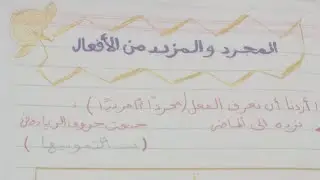 المجرد والمزيد من الأفعال
إذا أردنا أن نعرف الفعل (مجردًا أم مزيدًا) :
نرده إلى الماضي
حروف الزيادة
(سألتمونيها)